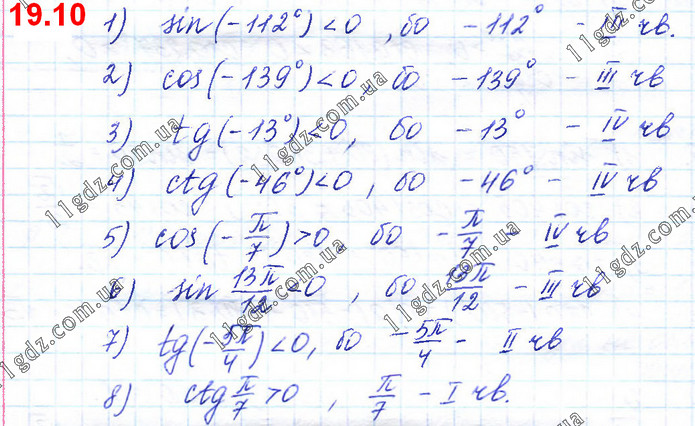 19.10
1) sin(-112°)<0, бо -112° - IV чв.
2) cos(-139°)<0, бо -139° - III чв
3) tg(-13°)<0, бо -13° - IV чв
4) ctg(-46°)<0, бо -46° - IV чв
5) cos(-π/7)>0, бо -π/7 - IV чв
6) sin 13π/12<0, бо 13π/12 - III чв
7) tg(-5π/4)<0, бо -5π/4 - II чв
8) ctg π/7>0, π/7 - I чв.
11gdz.com.ua
11gdz.com.ua
11gdz.com.ua
11gdz.com.ua